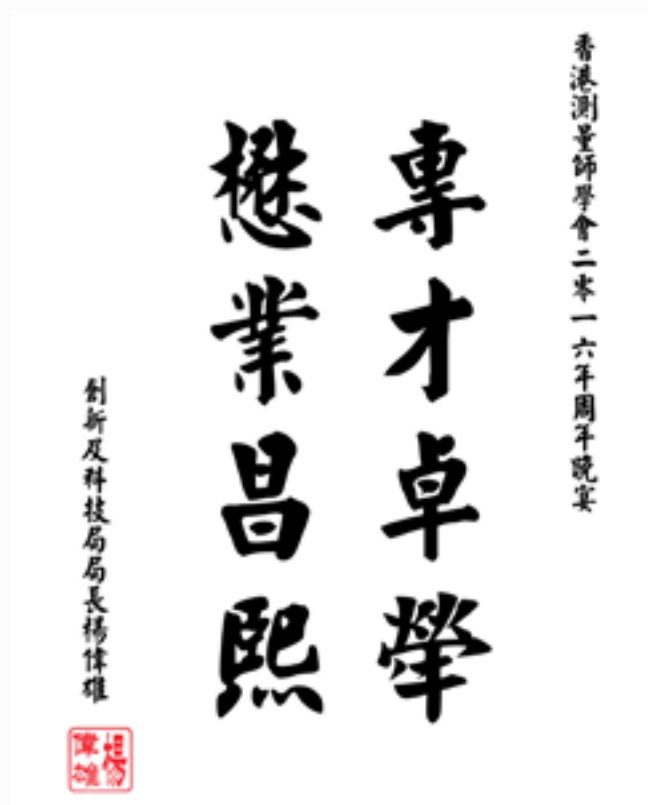 香港測量師學會二零一六年周年晚宴
專才卓犖
懋業昌熙
創新及科技局局長楊偉雄
楊
偉雄